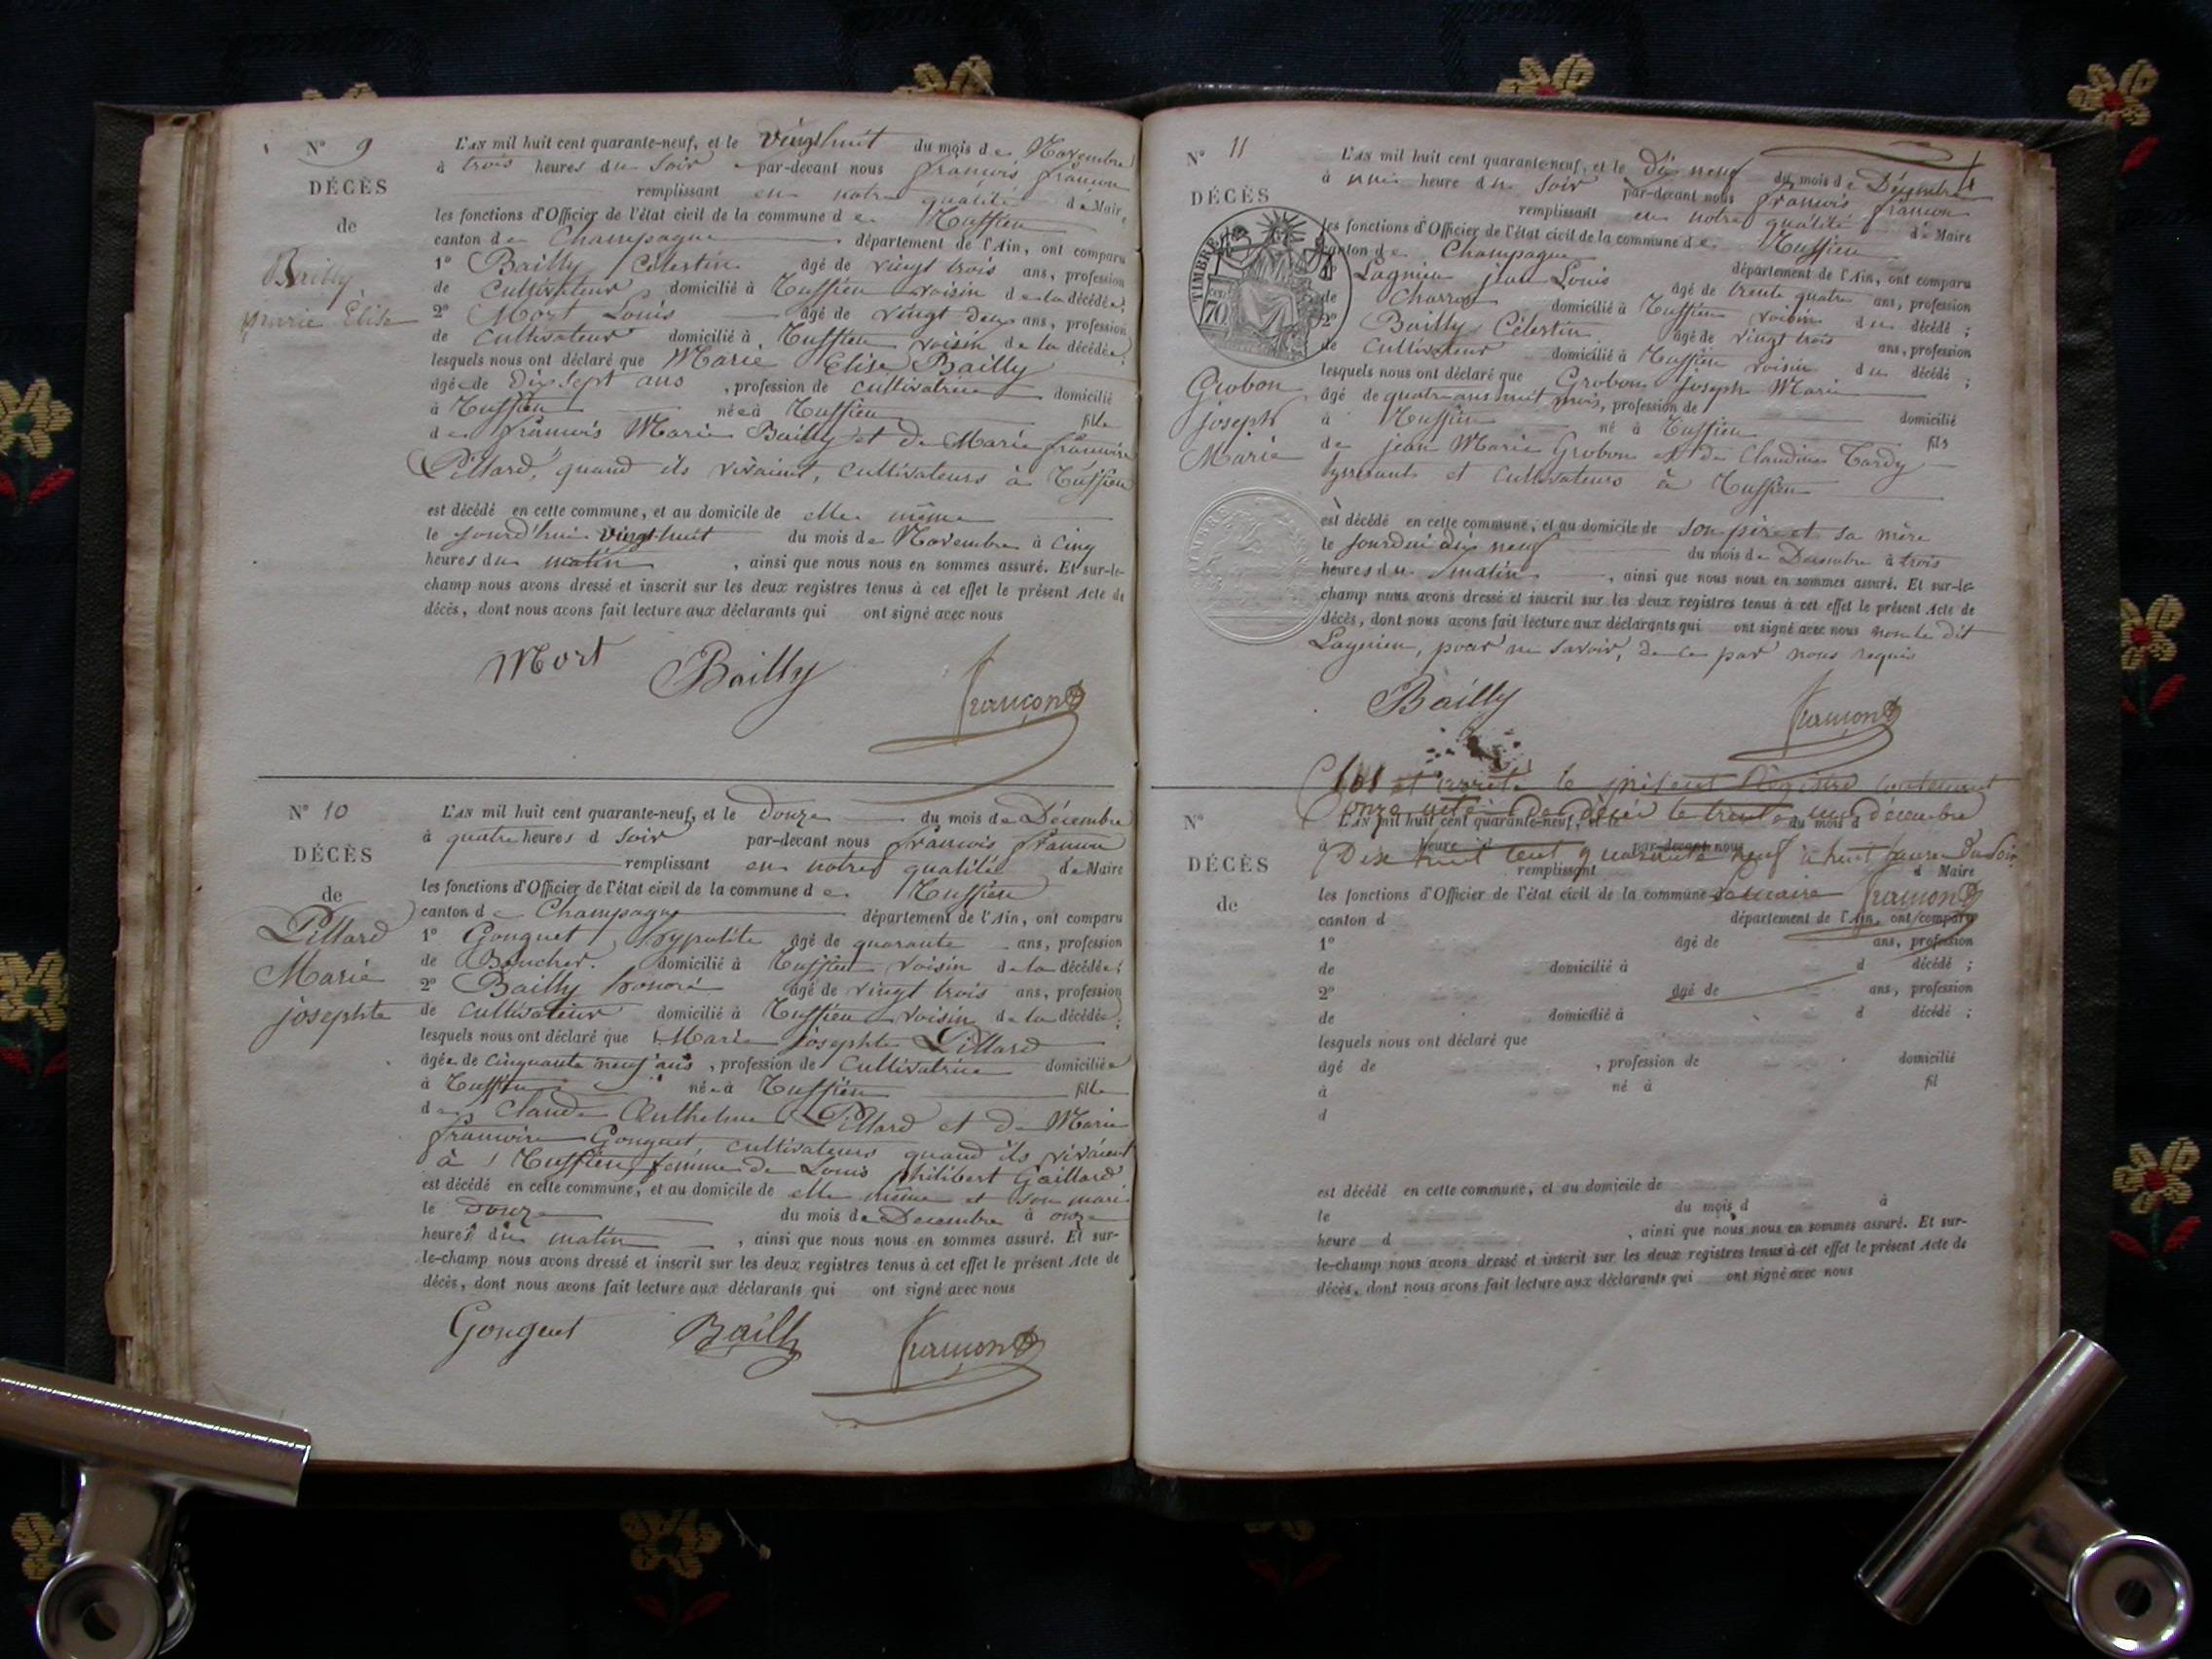 N° 9
DÉCÈS
de
Bailly
marie Elise
L'AN mil huit cent quarante-neuf, et le vingt huit du mois de Novembre
à trois heures du soir par-devant nous francois francon
remplissant en notre qualité de Maire
les fonctions d'Officier de l'état civil de la commune de Ruffieu
canton de Champagne département de l'Ain, ont comparu
1° Bailly Célestin âgé de vingt trois ans, profession
de cultivateur domicilié à Ruffieu voisin de la décédée;
2° Mort Louis âgé de vingt deux ans, profession
de cultivateur domicilié à Ruffieu voisin de la décédée;
lesquels nous ont déclaré que Marie Elise Bailly
âgée de dix sept ans, profession de cultivatrice domicilié
à Ruffieu née à Ruffieu fille
de francois Marie Bailly et de Marie francoise
Pillard, quand ils vivaient, cultivateurs à Ruffieu
est décédé en cette commune, et au domicile de elle même
le jourd'hui vingt-huit du mois de Novembre à cinq
heures du matin, ainsi que nous nous en sommes assuré. Et sur-le-
champ nous avons dressé et inscrit sur les deux registres tenus à cet effet le présent Acte de
décès, dont nous avons fait lecture aux déclarants qui ont signé avec nous
Mort Bailly francon
N° 10
DÉCÈS
de
Pillard
Marie
josephte
L'AN mil huit cent quarante-neuf, et le douze du mois de Décembre
à quatre heures d soir par-devant nous francois francon
remplissant en notre qualité de Maire
les fonctions d'Officier de l'état civil de la commune de Ruffieu
canton de Champagne département de l'Ain, ont comparu
1° Gonguet hyppolite âgé de quarante ans, profession
de Boucher domicilié à Ruffieu voisin de la décédée;
2° Bailly honoré âgé de vingt trois ans, profession
de cultivateur domicilié à Ruffieu voisin de la décédée;
lesquels nous ont déclaré que Marie josephte Pillard
âgée de cinquante neuf ans, profession de cultivatrice domiciliée
à Ruffieu née à Ruffieu fille
de Claude Anthelme Pillard et de Marie
francoise Gonguet, cultivateurs quand ils vivaient
à Ruffieu, femme de Louis philibert Gaillard
est décédé en cette commune, et au domicile de elle même et son mari
le douze du mois de Decembre à onze
heures du matin, ainsi que nous nous en sommes assuré. Et sur-
le-champ nous avons dressé et inscrit sur les deux registres tenus à cet effet le présent Acte de
décès, dont nous avons fait lecture aux déclarants qui ont signé avec nous
Gonguet Bailly francon
N° 11
DÉCÈS
TIMBRE
70
Grobon
joseph
Marie
L'AN mil huit cent quarante-neuf, et le dix neuf du mois de Décembre
à une heure du soir par-devant nous francois francon
remplissant en notre qualité de Maire
les fonctions d'Officier de l'état civil de la commune de Ruffieu
canton de Champagne département de l'Ain, ont comparu
1° Lagnieu jean Louis âgé de trente quatre ans, profession
de Charron domicilié à Ruffieu voisin du décédé;
2° Bailly Célestin âgé de vingt trois ans, profession
de cultivateur domicilié à Ruffieu voisin du décédé;
lesquels nous ont déclaré que Grobon joseph Marie
âgé de quatre ans mois, profession de domicilié
à Ruffieu né à Ruffieu fils
de jean Marie Grobon et de Claudine Tardy
tisserants et cultivateurs à Ruffieu
est décédé en cette commune, et au domicile de son père et sa mère
le jourdui dix neuf du mois de Decembre à trois
heures du matin, ainsi que nous nous en sommes assuré. Et sur-le-
champ nous avons dressé et inscrit sur les deux registres tenus à cet effet le présent Acte de
décès, dont nous avons fait lecture aux déclarants qui ont signé avec nous non le dit
Lagnieu, pour ne savoir, de ce par nous requis
Bailly francon
Clos et arrêté le présent Régistre contenant
onze actes de décés le trente un décembre
Dix huit cent quarante neuf à huit heures du soir
le maire francon
N°
DÉCÈS
de
L'AN mil huit cent quarante-neuf, et le du mois d
à heure d par-devant nous
remplissant d Maire
les fonctions d'Officier de l'état civil de la commune
canton d département de l'Ain, ont comparu
1° âgé de ans, profession
de domicilié à d décédé;
2° âgé de ans, profession
de domicilié à d décédé;
lesquels nous ont déclaré que
âgé de , profession de domicilié
à né à fil
d
est décédé en cette commune, et au domicile de
le du mois d à
heure d , ainsi que nous nous en sommes assuré. Et sur-
le-champ nous avons dressé et inscrit sur les deux registres tenus à cet effet le présent Acte de
décès, dont nous avons fait lecture aux déclarants qui ont signé avec nous